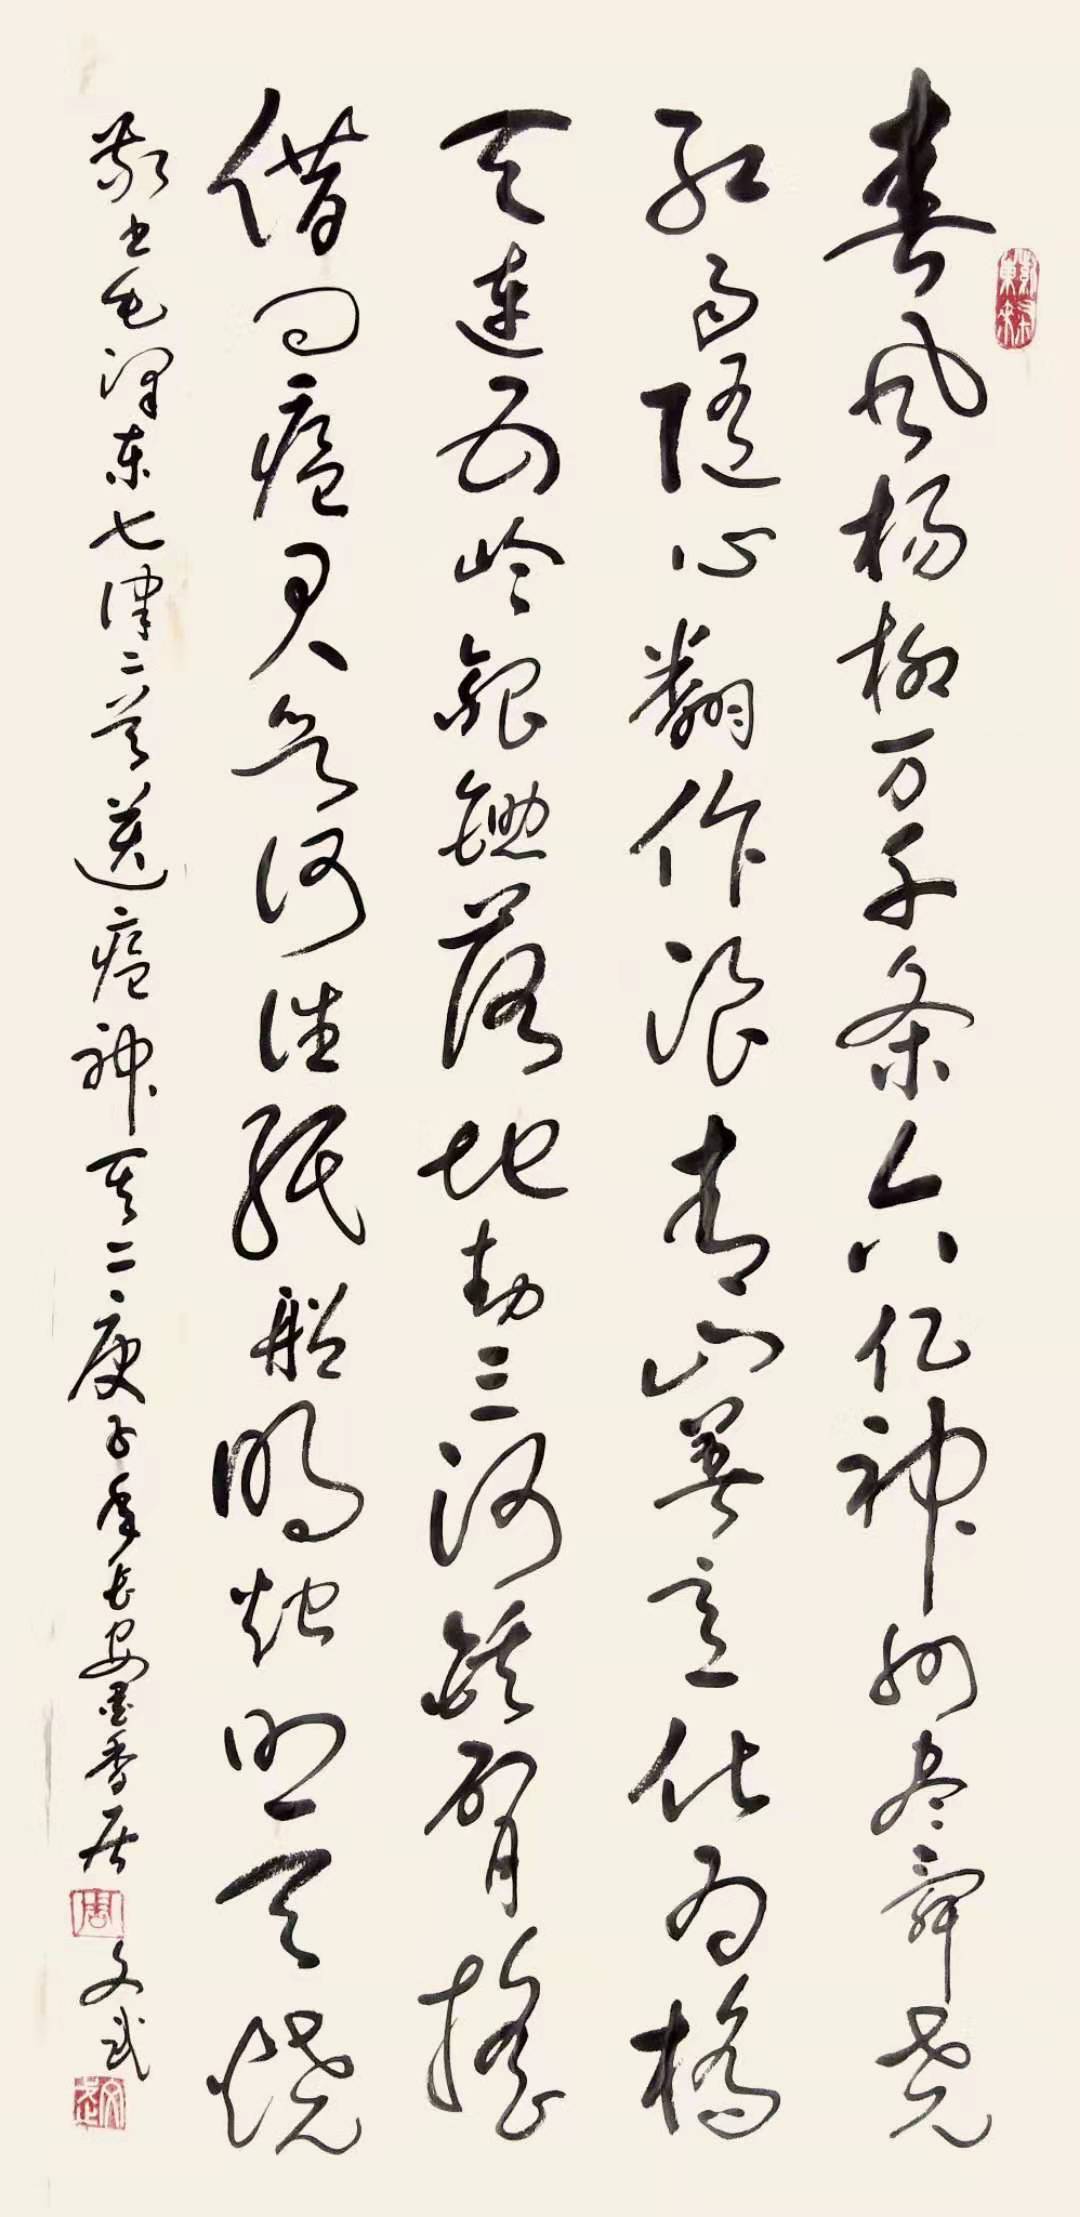 春风杨柳万千条六亿神州尽舜尧
红雨随心翻作浪青山着意化为桥
天连五岭银锄落地动三河铁臂摇
借问瘟君欲何往纸船明烛照天烧
敬书毛泽东七律二首送瘟神其二庚子年长安墨香居周文武
紫气東来